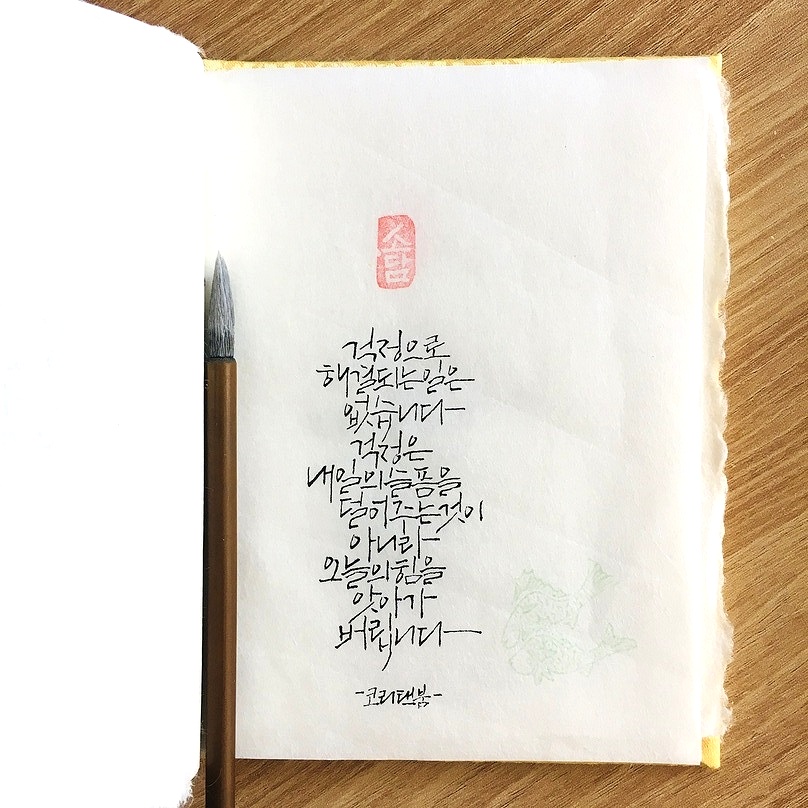 소담
걱정으로
해결되는일은
없습니다
걱정은
내일의슬픔을
덜어주는것이
아니라
오늘의힘을
앗아가
버립니다
-코리텐붐-